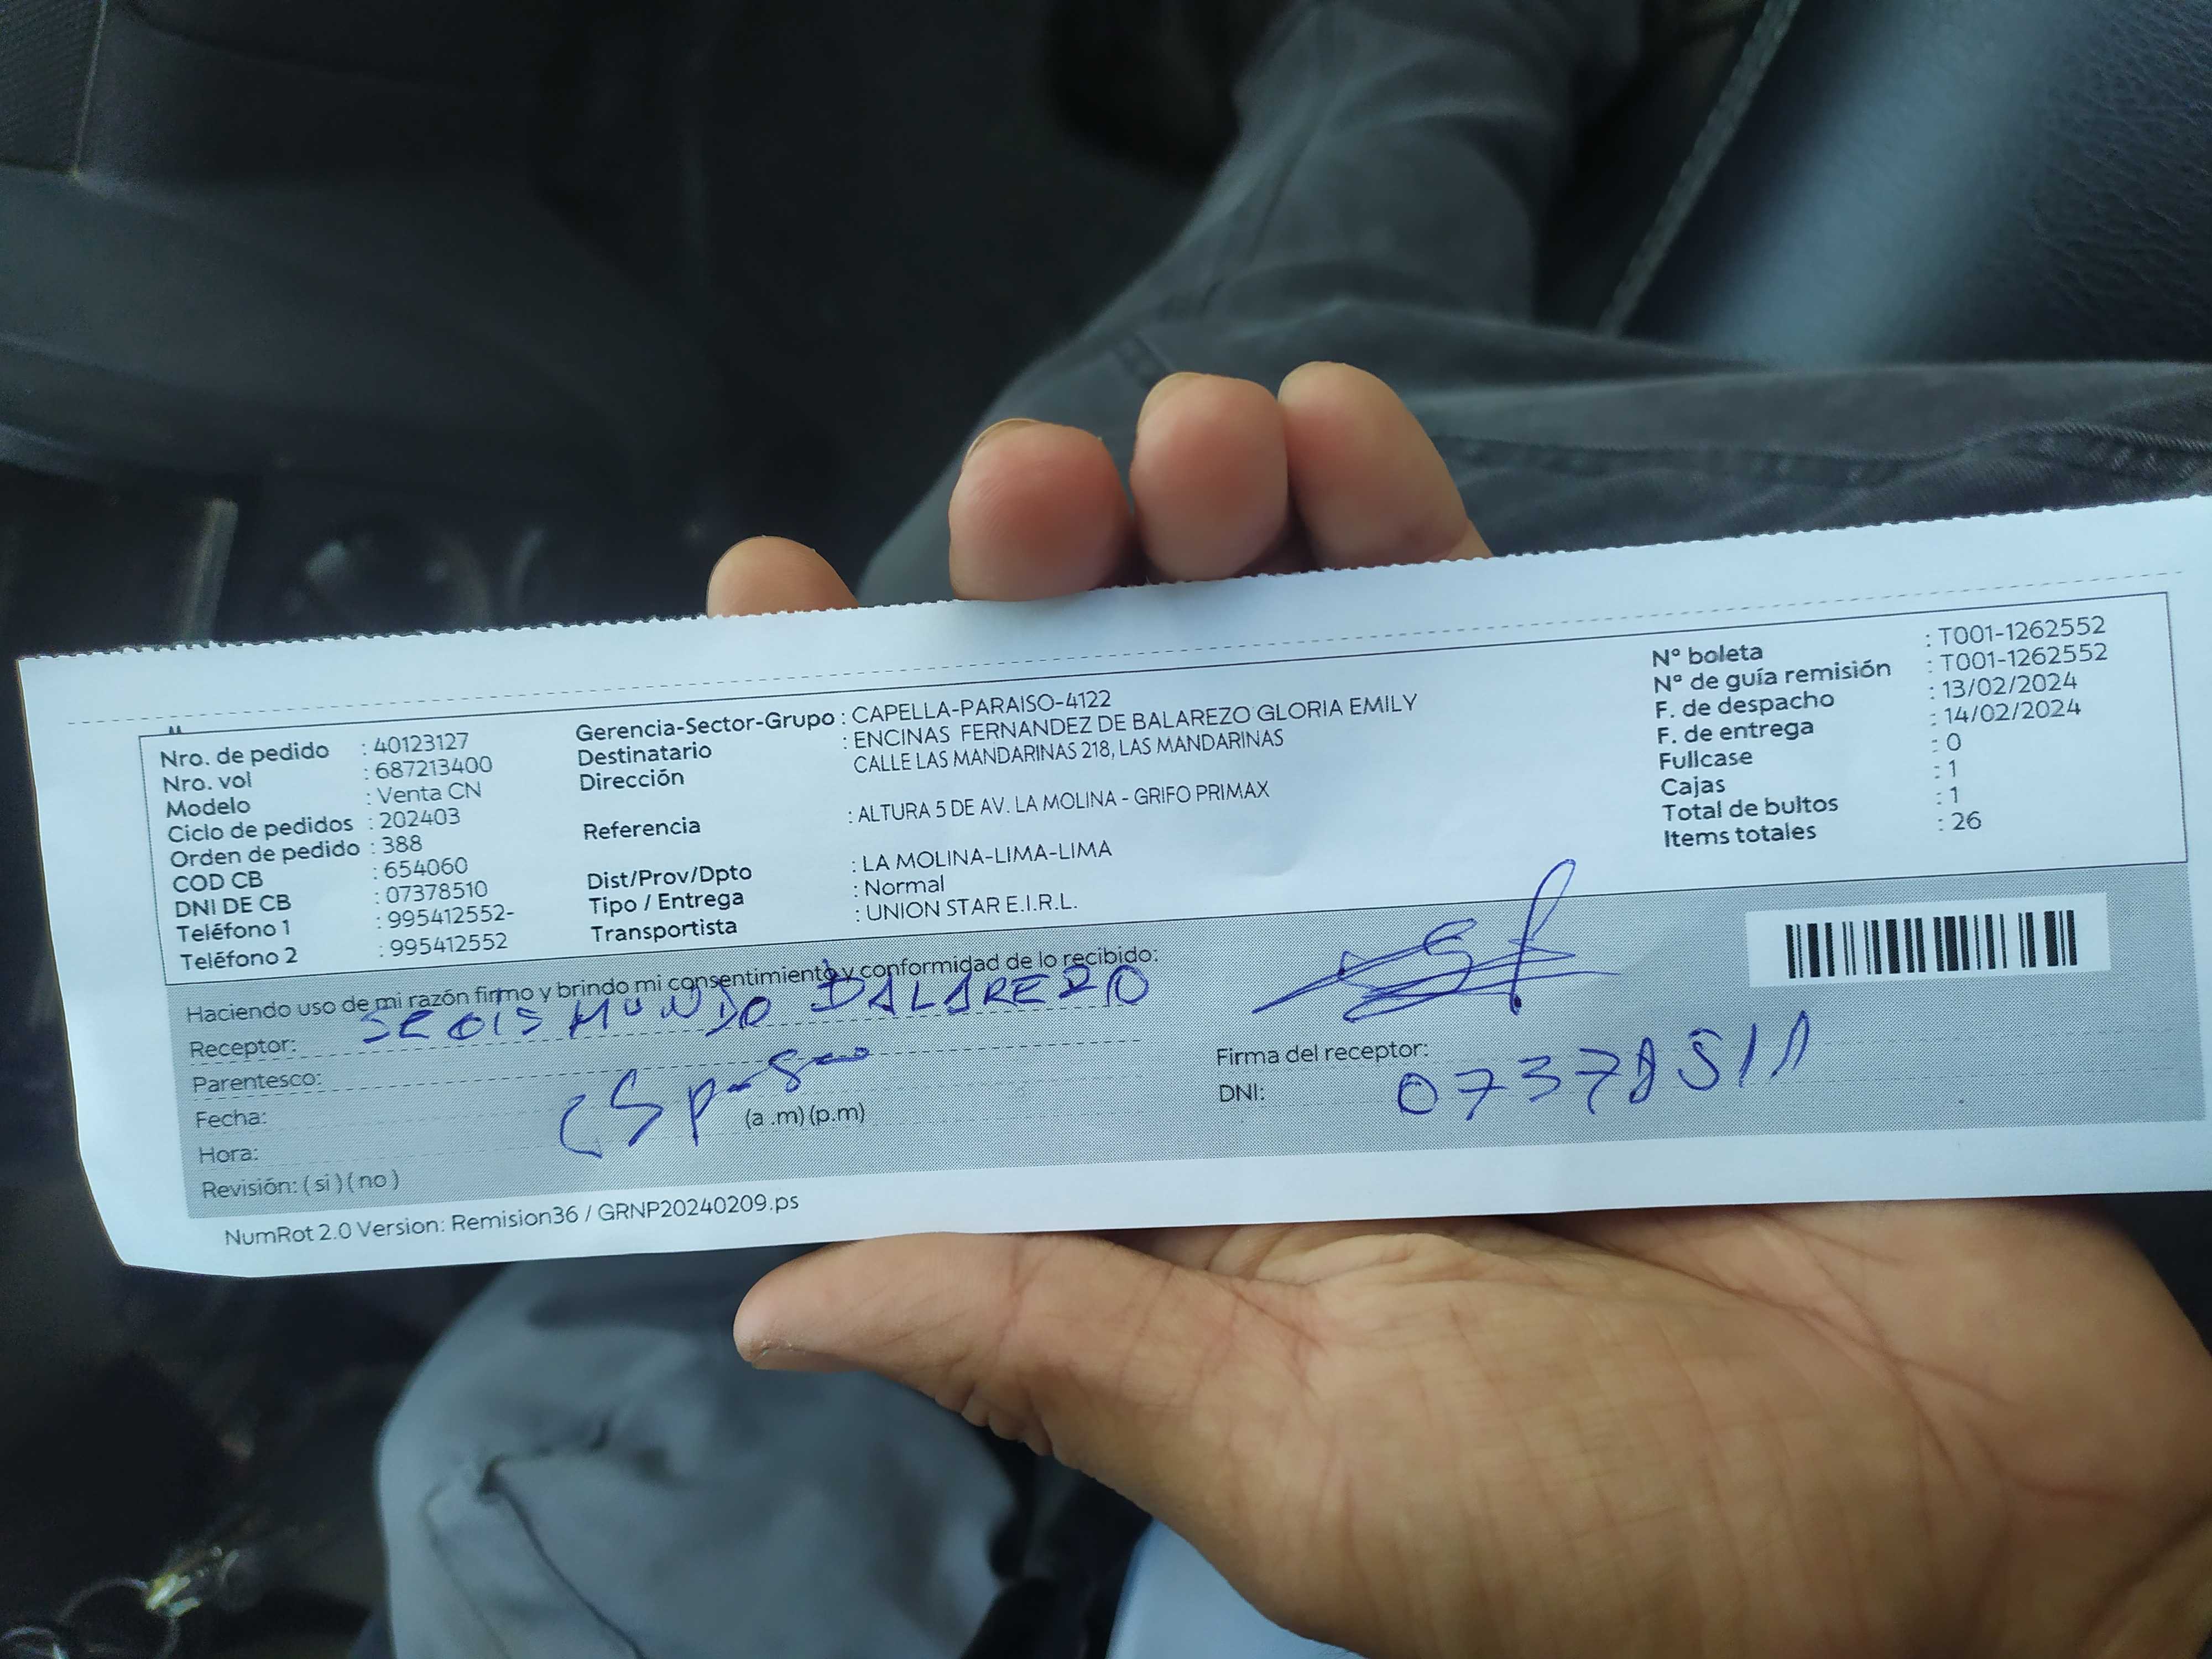 Nro. de pedido : 40123127
Nro. vol : 687213400
Modelo : Venta CN
Ciclo de pedidos : 202403
Orden de pedido : 388
COD CB : 654060
DNI DE CB : 07378510
Teléfono 1 : 995412552-
Teléfono 2 : 995412552
Gerencia-Sector-Grupo : CAPELLA-PARAISO-4122
Destinatario : ENCINAS FERNANDEZ DE BALAREZO GLORIA EMILY
Dirección CALLE LAS MANDARINAS 218, LAS MANDARINAS
Referencia : ALTURA 5 DE AV. LA MOLINA - GRIFO PRIMAX
Dist/Prov/Dpto : LA MOLINA-LIMA-LIMA
Tipo / Entrega : Normal
Transportista : UNION STAR E.I.R.L.
Nº boleta : T001-1262552
Nº de guía remisión : T001-1262552
F. de despacho : 13/02/2024
F. de entrega : 14/02/2024
Fullcase : 0
Cajas : 1
Total de bultos : 1
Items totales : 26
Haciendo uso de mi razón firmo y brindo mi consentimiento y conformidad de lo recibido:
Receptor: BALAREZO
Parentesco:
Fecha:
Hora: (a .m) (p.m)
Revisión: ( si ) ( no )
Firma del receptor:
DNI:
NumRot 2.0 Version: Remision36 / GRNP20240209.ps